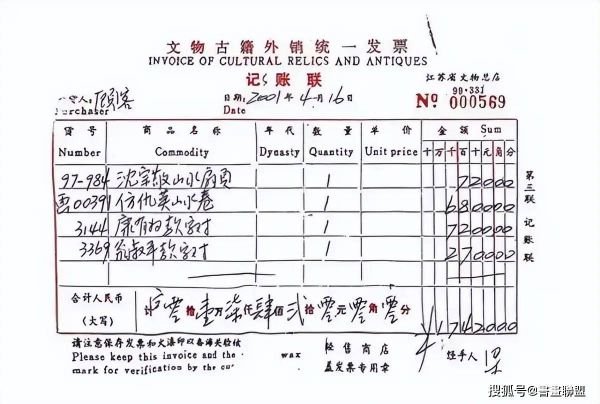 文物古籍外销统一发票
INVOICE OF CULTURAL RELICS AND ANTIQUES
记账联
江苏省文物总店
99·331
人: 顾客
Purchaser
日期: 2001年4月16日
Date
№ 000569
货号 商品名称 年代 数量 单价 金额 Sum
Number Commodity Dynasty Quantity Unit price 十万千百十元角分
97-984 沈宗敬山水扇页 1 72000
画00391 仿仇英山水卷 1 680000
3144 康有为款字对 1 720000
3369 翁叔平款字对 1 270000
合计人民币
(大写) 零拾壹万柒仟肆佰贰拾零元零角零分 1742000
第三联 记账联
请注意保存发票和火漆印以备海关验核
Please keep this invoice and the wax
mark for verification by the
销售商店
盖发票专用章
经手人
搜狐号@書畫聯盟